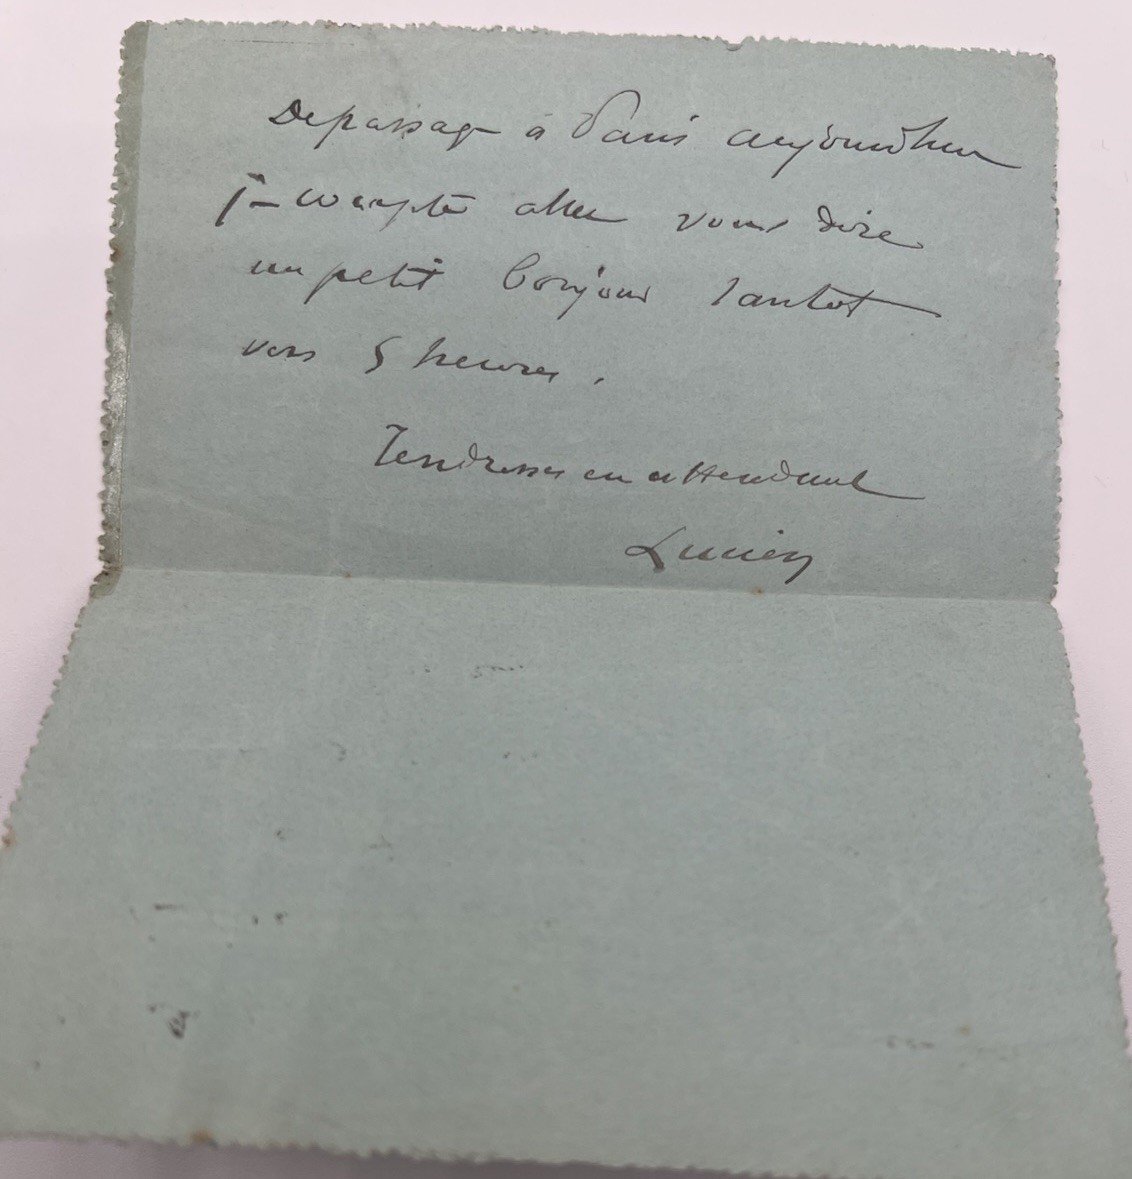 De passage à Paris aujourd'hui
je compte aller vous dire
un petit bonjour tantot
vers 5 heures.
Tendresses en attendant
Lucien